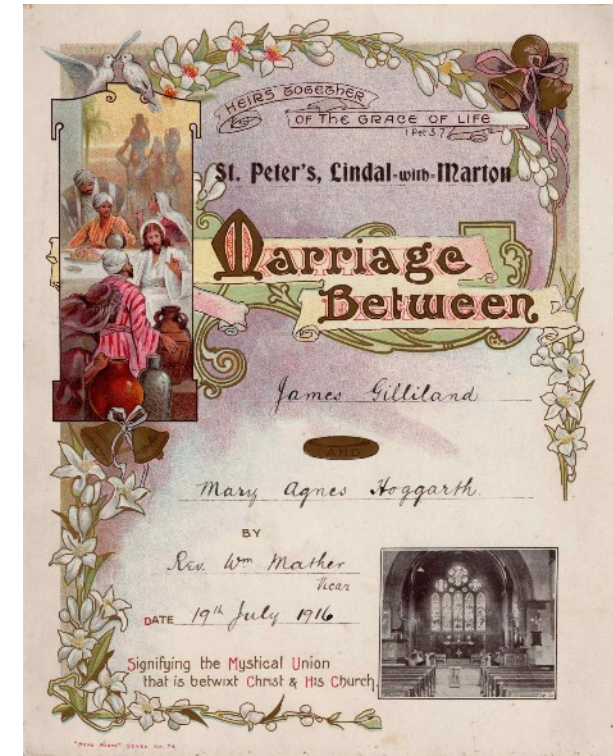 HEIRS TOGETHER
OF THE GRACE OF LIFE
1 Pet 3 7
St. Peter's, Lindal-with-Marton
Marriage
Between
James Gilliland
AND
Mary Agnes Hoggarth.
BY
Rev. Wm Mather
Vicar
DATE 19th July 1916
Signifying the Mystical Union
that is betwixt Christ & His Church.
"HOME WORDS" SERIES. NO. 74.